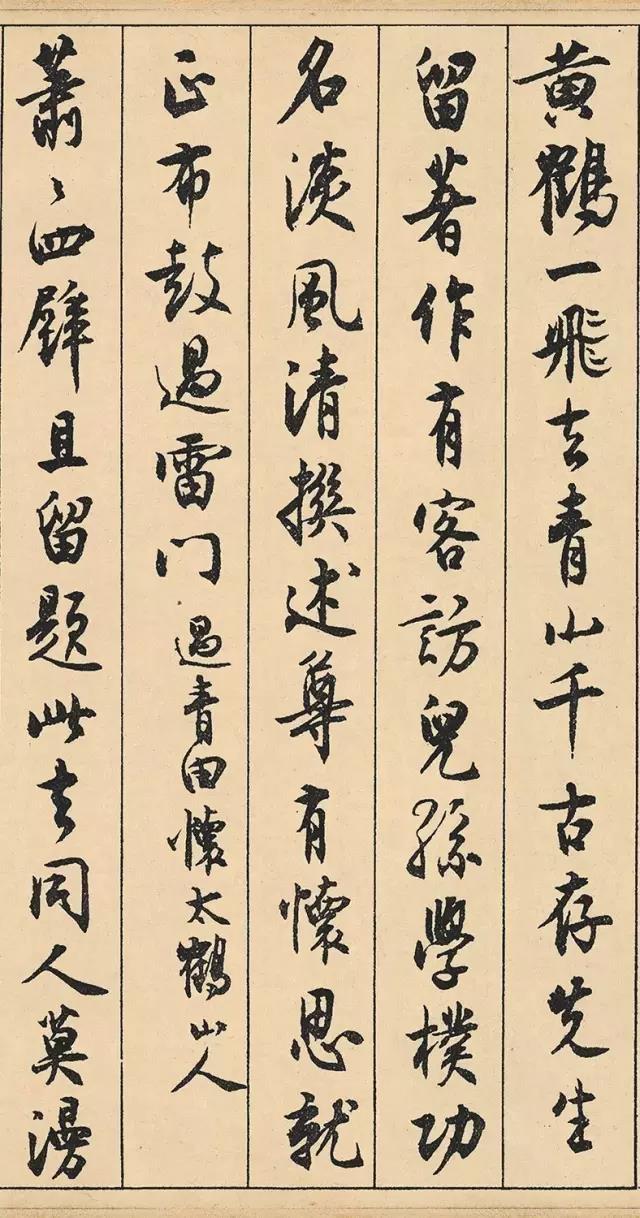 黄鹤一飛去青山千古存先生
留著作有客訪兒孫學樸功
名淡風清撰述尊有懷思就
正布鼓過雷门 過青田懷太鶴山人
蕭〻四壁且留題此去同人莫漫